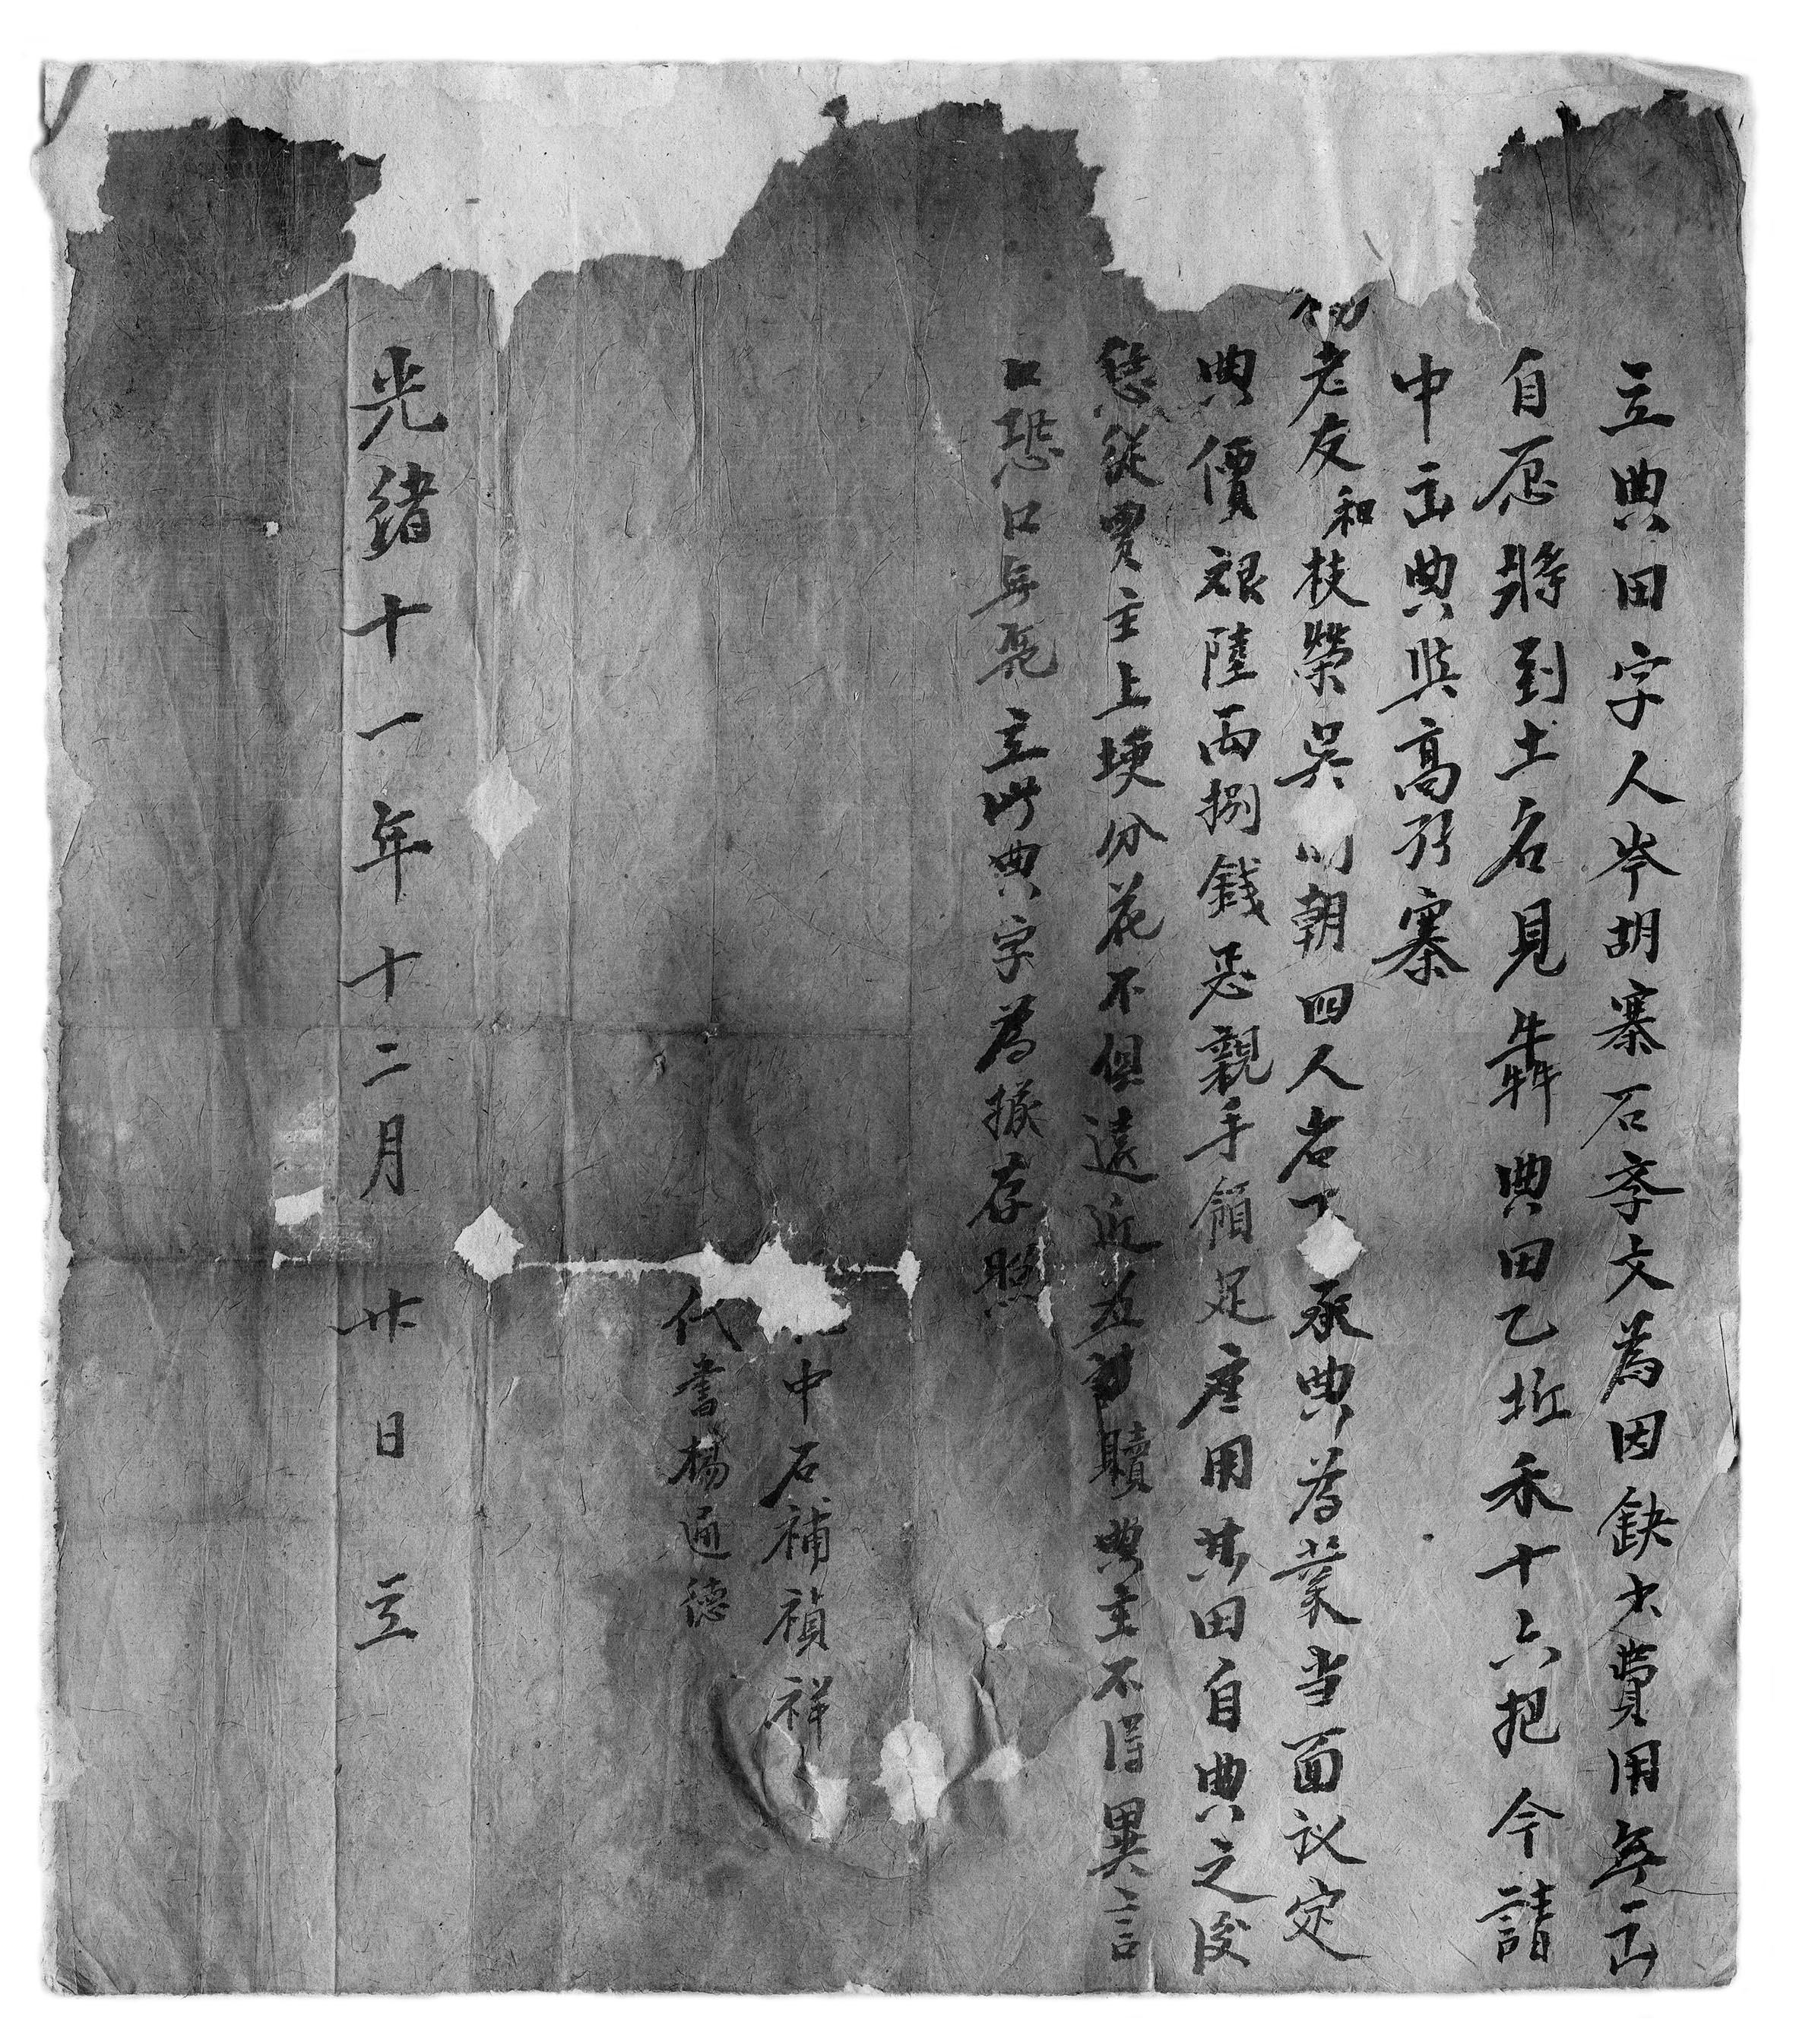 立典田字人岑胡寨石李文為因缺少費用無出
自愿將到土名見犇典田乙坵禾十六把今請
中出典與高形寨
老友和枝榮吳朝四人名下承典為業当面议定
典價艮陸両捌錢忝親手領足應用其田自典之後
恁從買主上埂分花不俱遠近並贖典主不得異言
口恐口無凴立此典字為據存照
中石補禎祥
代書楊通德
光緒十一年十二月廿日立